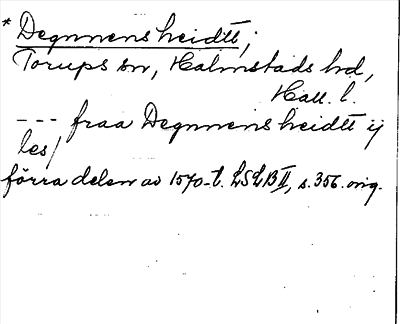 * Degnmens heidtt;
Torups sn, Halmstads hd,
Hall. l.
--- fraa Degnmens heidtt ij
les/
förra delen av 1570-t. LSLB II, s. 356. orig.